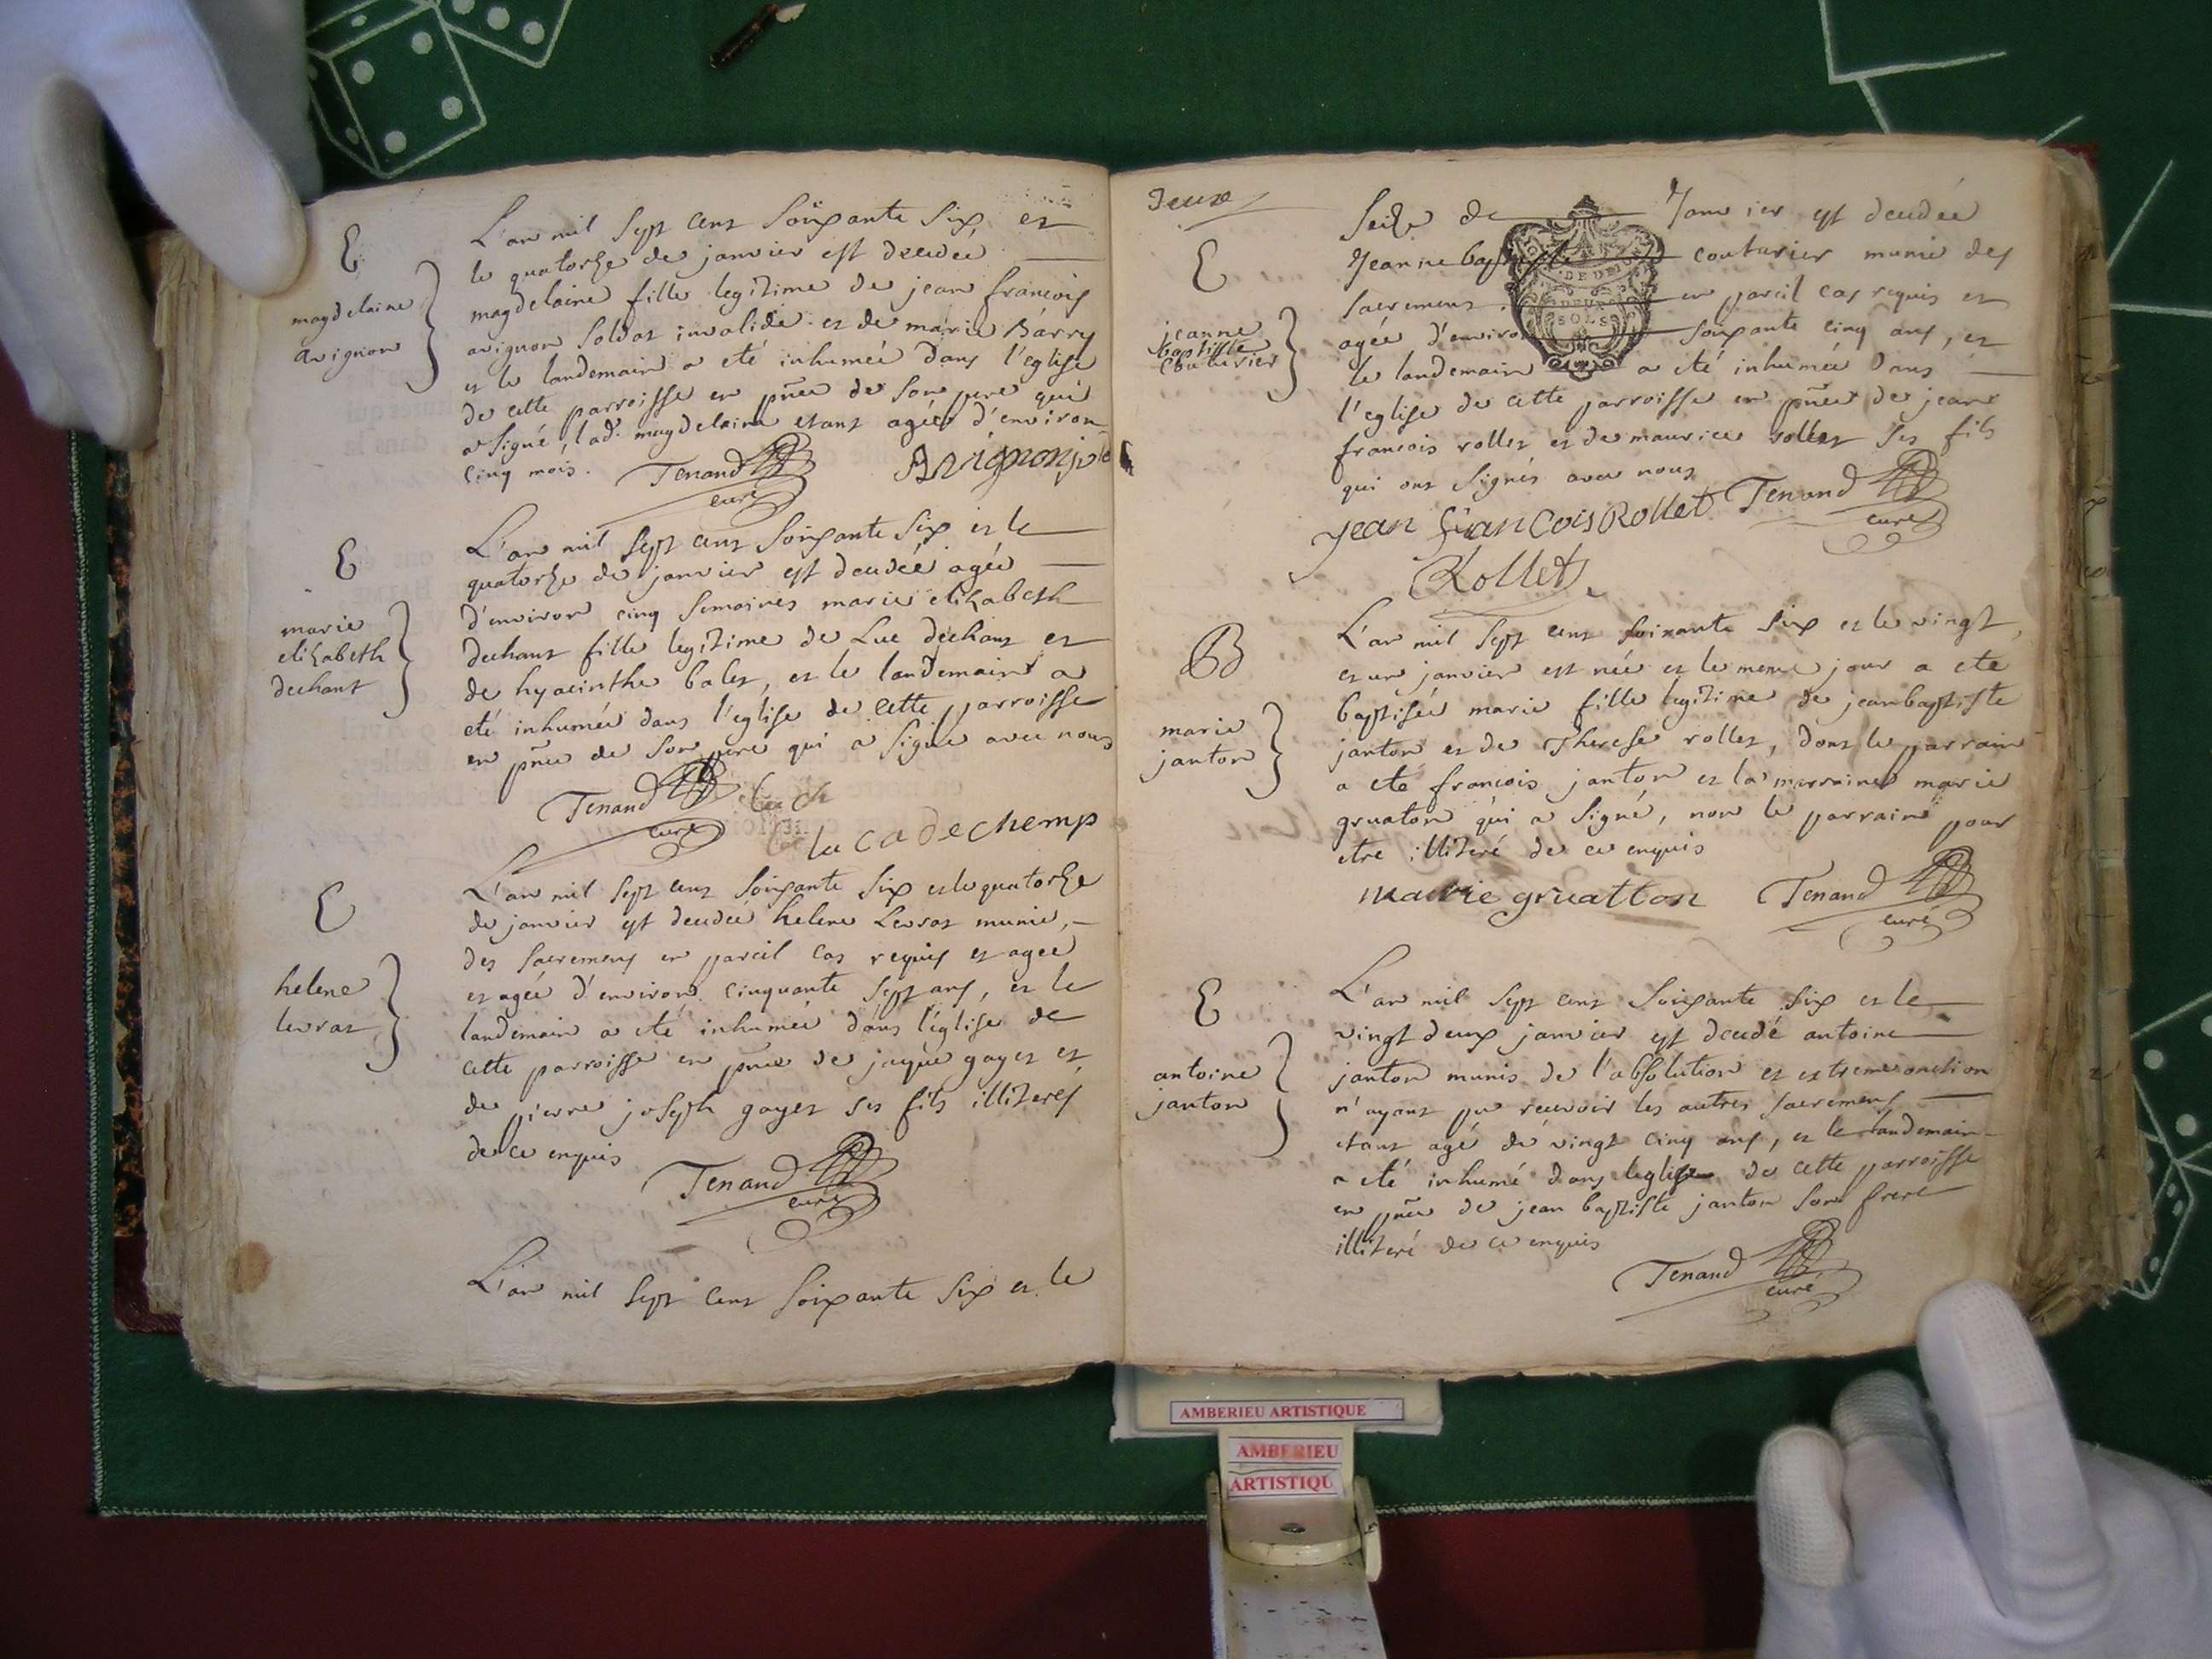 E
magdelaine
avignon
L'an mil sept cent soixante six et
le quatorze de janvier est decedée
magdelaine fille legitime de jean francois
avignon soldat invalide et de marie Barry
et le landemain a eté inhumée dans l'eglise
de cette parroisse en pñce de son pere qui
a signé, lad. magdelaine etant agée d'environ
cinq mois. Tenand
curé
Avignon
E
marie
elizabeth
dechant
L'an mil sept cent soixante six et le
quatorze de janvier est decedée agée
d'environ cinq semaines marie elizabeth
dechant fille legitime de Luc dechant et
de hyacinthe balet, et le landemain a
eté inhumée dans l'eglise de cette parroisse
en pñce de son pere qui a signé avec nous
Tenand
curé
luca dechemp
E
helene
levrat
L'an mil sept cent soixante six et le quatorze
de janvier est decedée helene Levrat munie,
des sacremens en pareil cas requis et agee
et agée d'environ cinquante sept ans, et le
landemain a eté inhumée dans l'église de
cette parroisse en pñce de jaque gayet et
de pierre joseph gayet ses fils illiterés
de ce enquis
Tenand
curé
L'an mil sept cent soixante six et le
Deux
seize de Janvier est decedée
E
jeanne
baptiste
couturier
Jeanne baptiste couturier munie des
sacremens en pareil cas requis et
agée d'environ soixante cinq ans, et
le landemain a eté inhumée dans
l'eglise de cette parroisse en pñce de jean
francois rollet et de maurice rollet ses fils
qui ont signés avec nous
DEUX
SOLS
jean francois Rollet Tenand
curé
Rollet
B
marie
janton
L'an mil sept cent soixante six et le vingt
et un janvier est née et le meme jour a ete
baptisée marie fille legitime de jean baptiste
janton et de Therese rollet, dont le parrain
a eté francois janton et la marraine marie
gruaton qui a signé, non le parrain pour
etre illiteré de ce enquis
marie gruatton Tenand
curé
E
antoine
janton
L'an mil sept cent soixante six et le
vingt deux janvier est decedé antoine
janton munis de l'absolution et extreme onction
n'ayant pu recevoir les autres sacremens
etant agé de vingt cinq ans, et le landemain
a eté inhumé dans leglise de cette parroisse
en pñce de jean baptiste janton son frere
illiteré de ce enquis
Tenand
curé
AMBERIEU ARTISTIQUE
AMBERIEU
ARTISTIQU